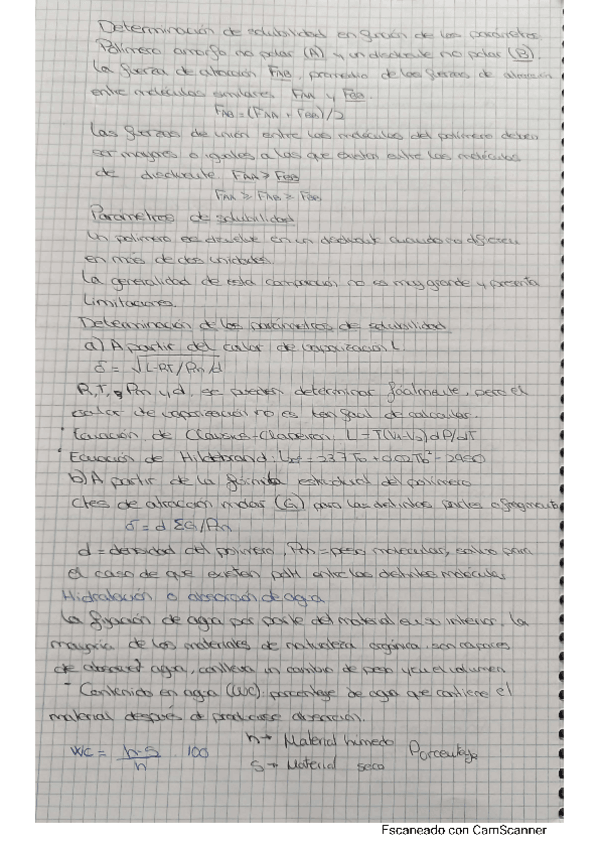 Determinación de solubilidad en función de los parámetros.
Polímero amorfo no polar (A) y un disolvente no polar (B).
La fuerza de atracción FAB, promedio de las fuerzas de atracción
entre moléculas similares FAA y FBB.
FAB = (FAA + FBB)/2
Las fuerzas de unión entre las moléculas del polímero deben
ser mayores o iguales a las que existen entre las moléculas
de disolvente FAA > FBB
FAA ≥ FAB ≥ FBB
Parámetros de solubilidad
Un polímero se disuelve en un disolvente cuando no difieren
en más de dos unidades.
La generalidad de esta comparación no es muy grande y presenta
limitaciones.
Determinación de los parámetros de solubilidad
a) A partir del calor de vaporización L
δ = √L-RT/Pm/d
R, T, Pm y d, se pueden determinar fácilmente, pero el
calor de vaporización no es tan fácil de calcular.
· Ecuación de Clausius-Clapeyron L = T(V1-V2) dP/dT
· Ecuación de Hildebrand: = 237Tb + 0,02Tb² - 2950
b) A partir de la fórmula estructural del polímero
Ctes de atracción molar (G) para las distintas partes o fragmentos
δ = d ΣG/Pm
d = densidad del polímero, Pm = peso molecular, salvo para
el caso de que existan pdH entre las distintas moléculas.
Hidratación o absorción de agua
La fijación de agua por parte del material en su interior, la
mayoría de los materiales de naturaleza orgánica son capaces
de absorber agua, conlleva un cambio de peso y en el volumen
- Contenido en agua (WC): porcentaje de agua que contiene el
material después de producirse absorción.
WC = h-s/h · 100 h → Material húmedo Porcentaje
s → Material seco
Escaneado con CamScanner